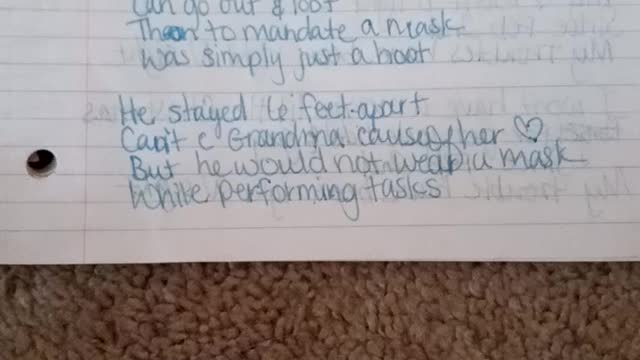 Can go out & loot
Then to mandate a mask
Was simply just a hoot
He stayed 6 feet apart
Can't c Grandma cause of her ♡
But he would not wear a mask
While performing tasks